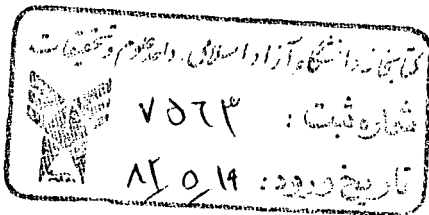 کتابخانه دانشگاه آزاد اسلامی، واحد علوم و تحقیقات
شماره ثبت : ۷۵۶۳
تاریخ ورود :